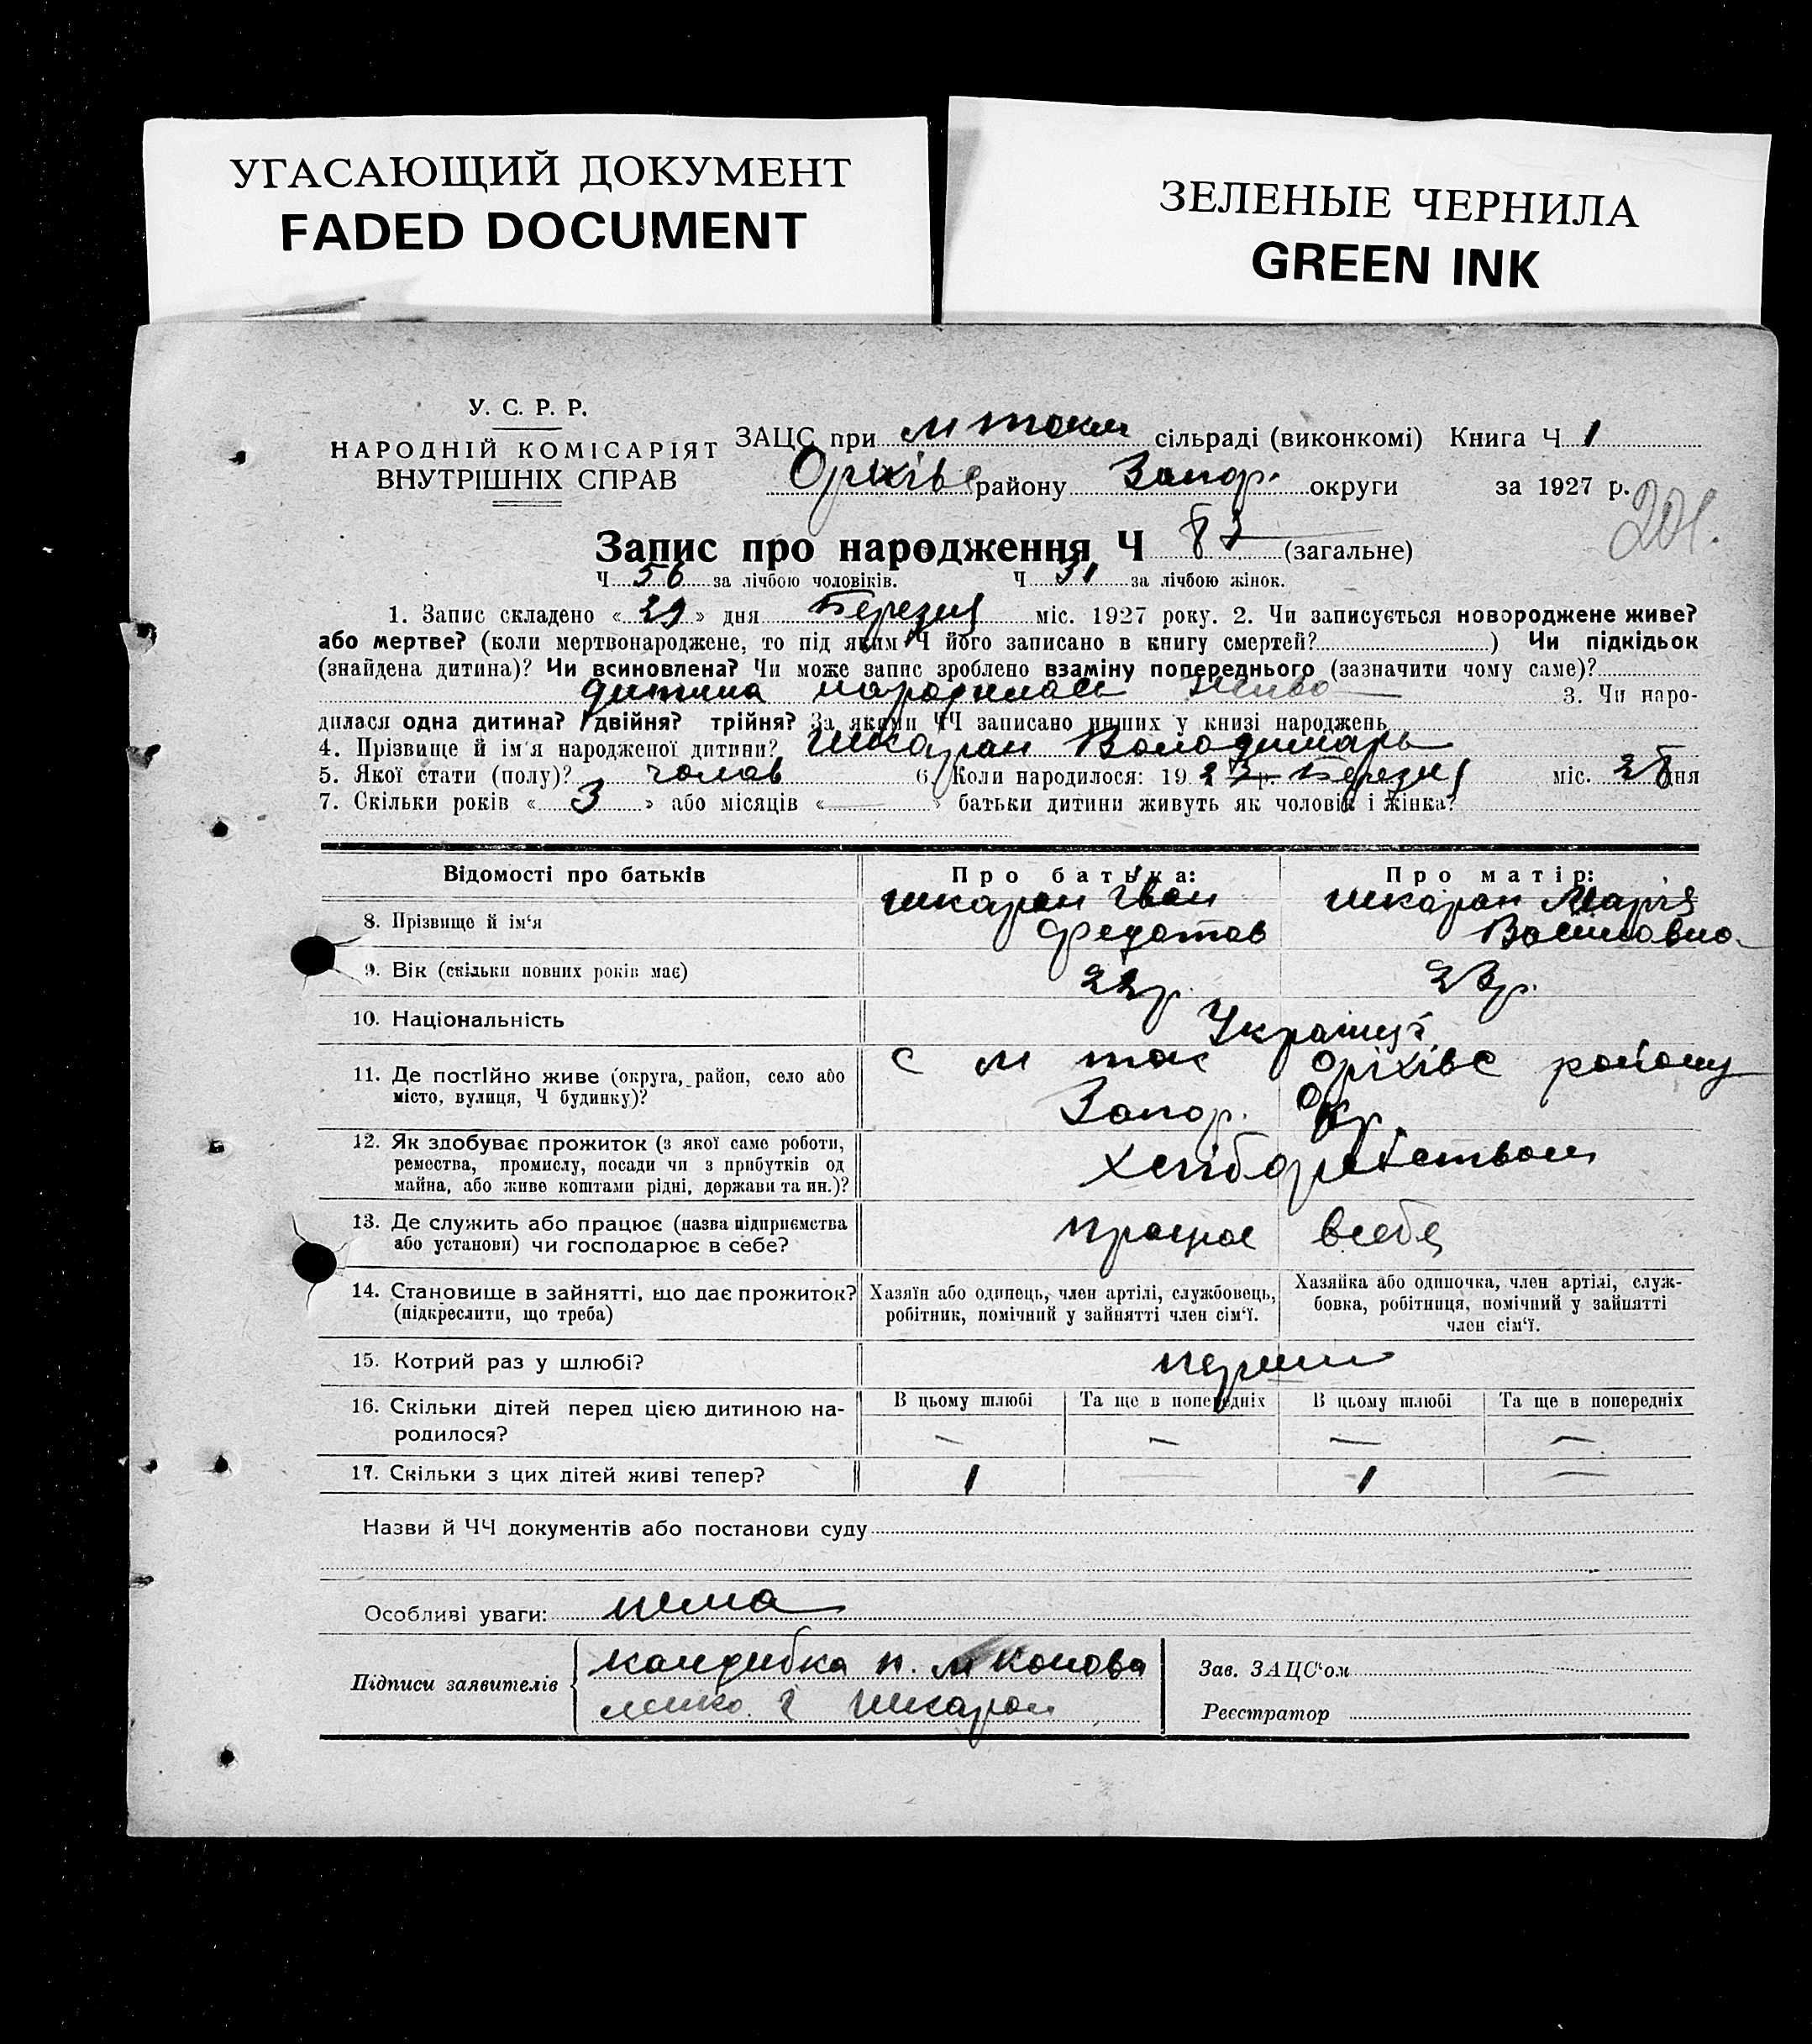 УГАСАЮЩИЙ ДОКУМЕНТ
FADED DOCUMENT
ЗЕЛЕНЫЕ ЧЕРНИЛА
GREEN INK
У. С. Р. Р.
НАРОДНІЙ КОМІСАРІЯТ
ВНУТРІШНІХ СПРАВ
ЗАЦС при М Токм сільраді (виконкомі) Книга Ч 1
Оріхівс району Запор. округи за 1927 р.
201.
Запис про народження Ч 87 (загальне)
Ч 56 за лічбою чоловіків. Ч 31 за лічбою жінок.
1. Запис складено « 29 » дня Березня міс. 1927 року. 2. Чи записується новороджене живе?
або мертве? (коли мертвонароджене, то під яким Ч його записано в книгу смертей? ) Чи підкідьок
(знайдена дитина)? Чи всиновлена? Чи може запис зроблено взаміну попереднього (зазначити чому саме)?
дитина народилась живо 3. Чи наро-
дилася одна дитина? двійня? трійня? За якими ЧЧ записано инших у книзі народжень
4. Прізвище й ім'я народженої дитини? Шкаран Володимирь
5. Якої стати (полу)? чолов 6. Коли народилося: 19 27 р. Березня міс. 28 дня
7. Скільки років « 3 » або місяців « — » батьки дитини живуть як чоловік і жінка?
Відомості про батьків Про батька: Про матір:
8. Прізвище й ім'я Шкаран Іван Федотов Шкаран Марія Василовно
9. Вік (скільки повних років має) 22 р. 23 р.
10. Національність Українці
11. Де постійно живе (округа, район, село або
місто, вулиця, Ч будинку)? с М Ток Оріхівс району
Запор. Окр.
12. Як здобуває прожиток (з якої саме роботи,
ремества, промислу, посади чи з прибутків од
майна, або живе коштами рідні, держави та ин.)? Хліборобством
13. Де служить або працює (назва підприємства
або установи) чи господарює в себе? працює всебя
14. Становище в зайнятті, що дає прожиток?
(підкреслити, що треба)
Хазяїн або одинець, член артілі, службовець,
робітник, помічний у зайнятті член сім'ї.
Хазяйка або одиночка, член артілі, служ-
бовка, робітниця, помічний у зайнятті
член сім'ї.
15. Котрий раз у шлюбі? перши
16. Скільки дітей перед цією дитиною на-
родилося?
В цьому шлюбі Та ще в попередніх В цьому шлюбі Та ще в попередніх
— — — —
17. Скільки з цих дітей живі тепер? 1 — 1 —
Назви й ЧЧ документів або постанови суду
Особливі уваги: нема
Підписи заявителів
Шкаран
Зав. ЗАЦС'ом
Реєстратор